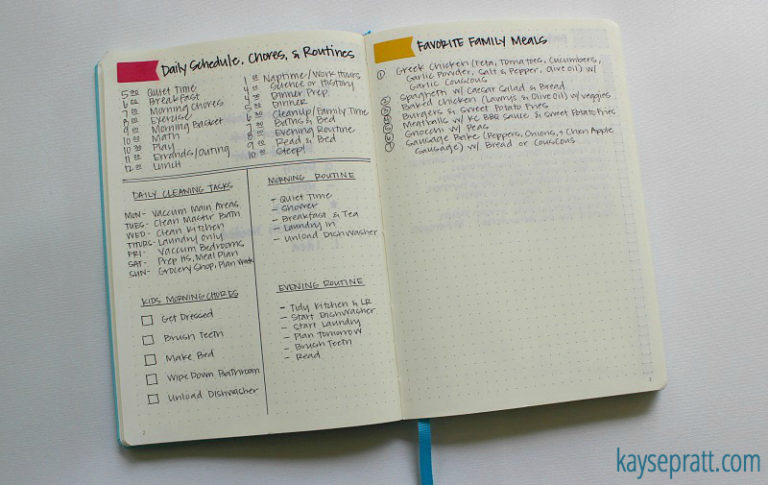 Daily Schedule, Chores, & Routines
5:00 Quiet Time
6:00 Breakfast
7:00 Morning Chores
8:00 Exercise
9:00 Morning Basket
10:00 Math
10:30 Play
11:00 Errands/Outing
12:00 Lunch
1:00 Naptime/Work Hours
Science or History
Dinner Prep
Dinner
Cleanup/Family Time
Baths & Bed
Evening Routine
9:00 Read & Bed
10:00 Sleep!
Daily Cleaning Tasks
Mon- Vaccum Main Areas
Tues- Clean Master Bath
Wed- Clean Kitchen
Thurs- Laundry Only
Fri- Vaccum Bedrooms
Sat- Prep HS, Meal Plan
Sun- Grocery Shop, Plan Week
Kids Morning Chores
Get Dressed
Brush Teeth
Make Bed
Wipe Down Bathroom
Unload Dishwasher
Morning Routine
- Quiet Time
- Shower
- Breakfast & Tea
- Laundry in
- Unload Dishwasher
Evening Routine
- Tidy Kitchen & LR
- Start Dishwasher
- Start Laundry
- Plan Tomorrow
- Brush Teeth
- Read
2
Favorite Family Meals
1 Greek Chicken (Feta, Tomatoes, Cucumbers,
Garlic Powder, Salt & Pepper, Olive oil) w/
Garlic Couscous
Spaghetti w/ Caesar Salad & Bread
Baked Chicken (Lawrys & Olive Oil) w/ veggies
Burgers & Sweet Potato Fries
Meatballs w/ KC BBQ Sauce & Sweet Potato Fries
Gnocchi w/ Peas
Sausage Bake (Peppers, Onions, + Chen Apple
Sausage) w/ Bread or Couscous
3
kaysepratt.com